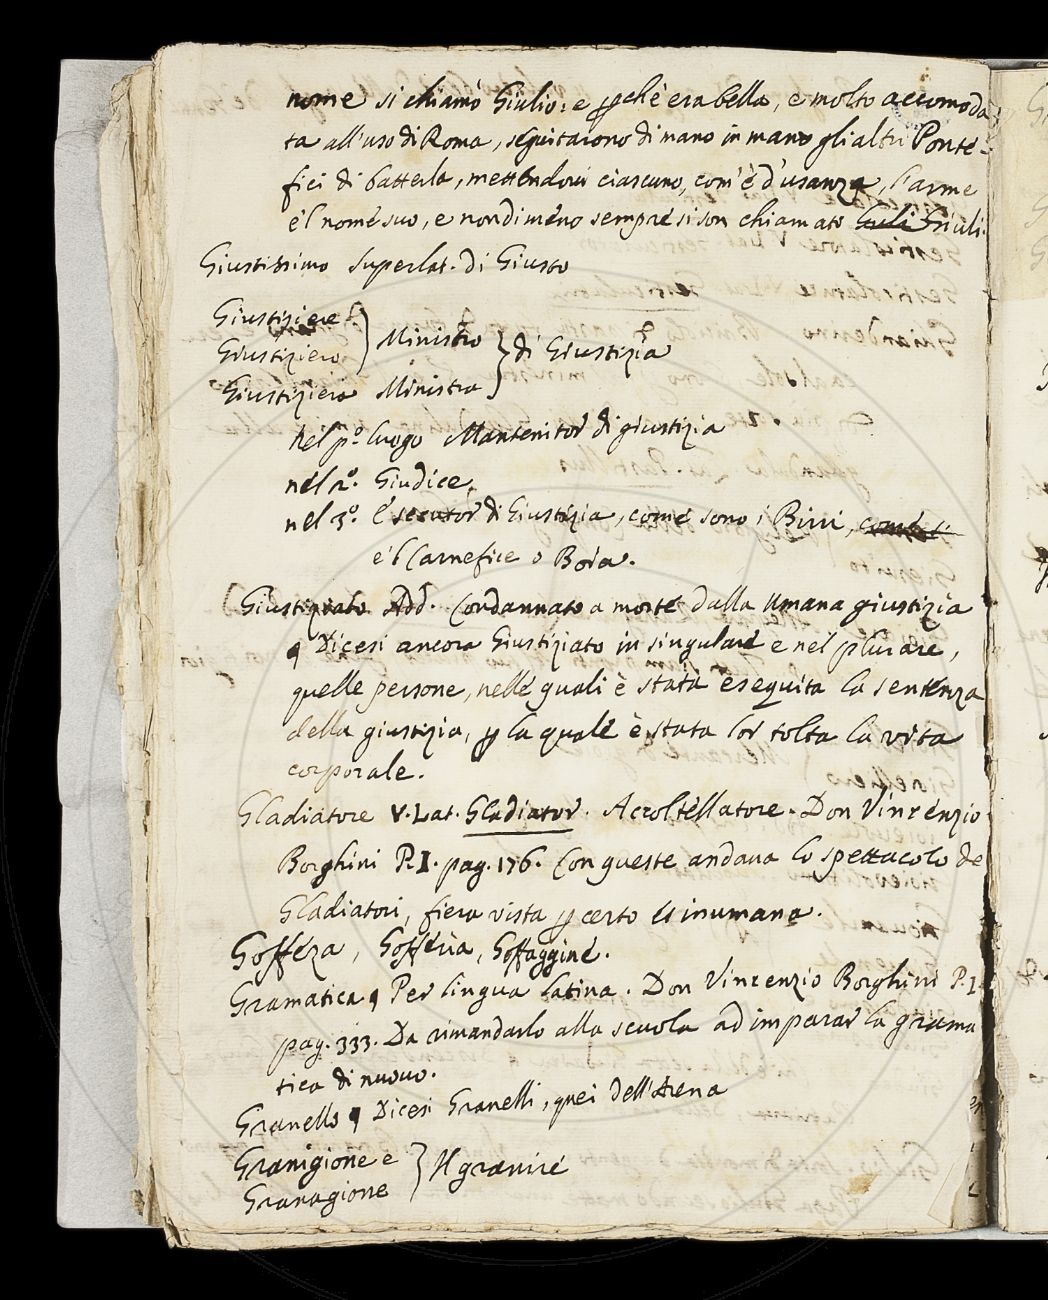 nome si chiamò Giulio: e p̱chè era bella, e molto accomoda
ta all'uso di Roma, seguitarono di mano in mano gli altri Ponte-
fici di batterla, mettendovi ciascuno, com'è d'usanza, l'arme
e'l nome suo, e nondimeno sempre si son chiamato Giuli Giuli.
Giustissimo superlat. di Giusto
Giustiziere
Giustiziero } Ministro } di Giustizia
Giustiziera Ministra
nel pº. luogo Mantenitor di giustizia
nel 2º. Giudice,
nel 3º. Esecutor di Giustizia, come sono i Birri,
e'l Carnefice o Boia.
Giustiziato Add. Condannato a morte dalla Umana giustizia
¶ Dicesi ancora Giustiziato in singulare e nel plurare,
quelle persone, nelle quali è stata eseguita la sentenza
della giustizia, p̱ la quale è stata lor tolta la vita
corporale.
Gladiatore V. Lat. Gladiator. Accoltellatore. Don Vincenzio
Borghini P. I. pag. 176. Con queste andava lo spettacolo de
Gladiatori, fiera vista p̱ certo et inumana.
Goffeza, Gofferia, Goffaggine.
Gramatica ¶ Per lingua latina. Don Vincenzio Borghini P. I.
pag. 333. Da rimandarlo alla scuola ad imparar la grama
tica di nuovo.
Granello ¶ Dicesi Granelli, quei dell'Arena
Granigione e
Granagione } Il granire